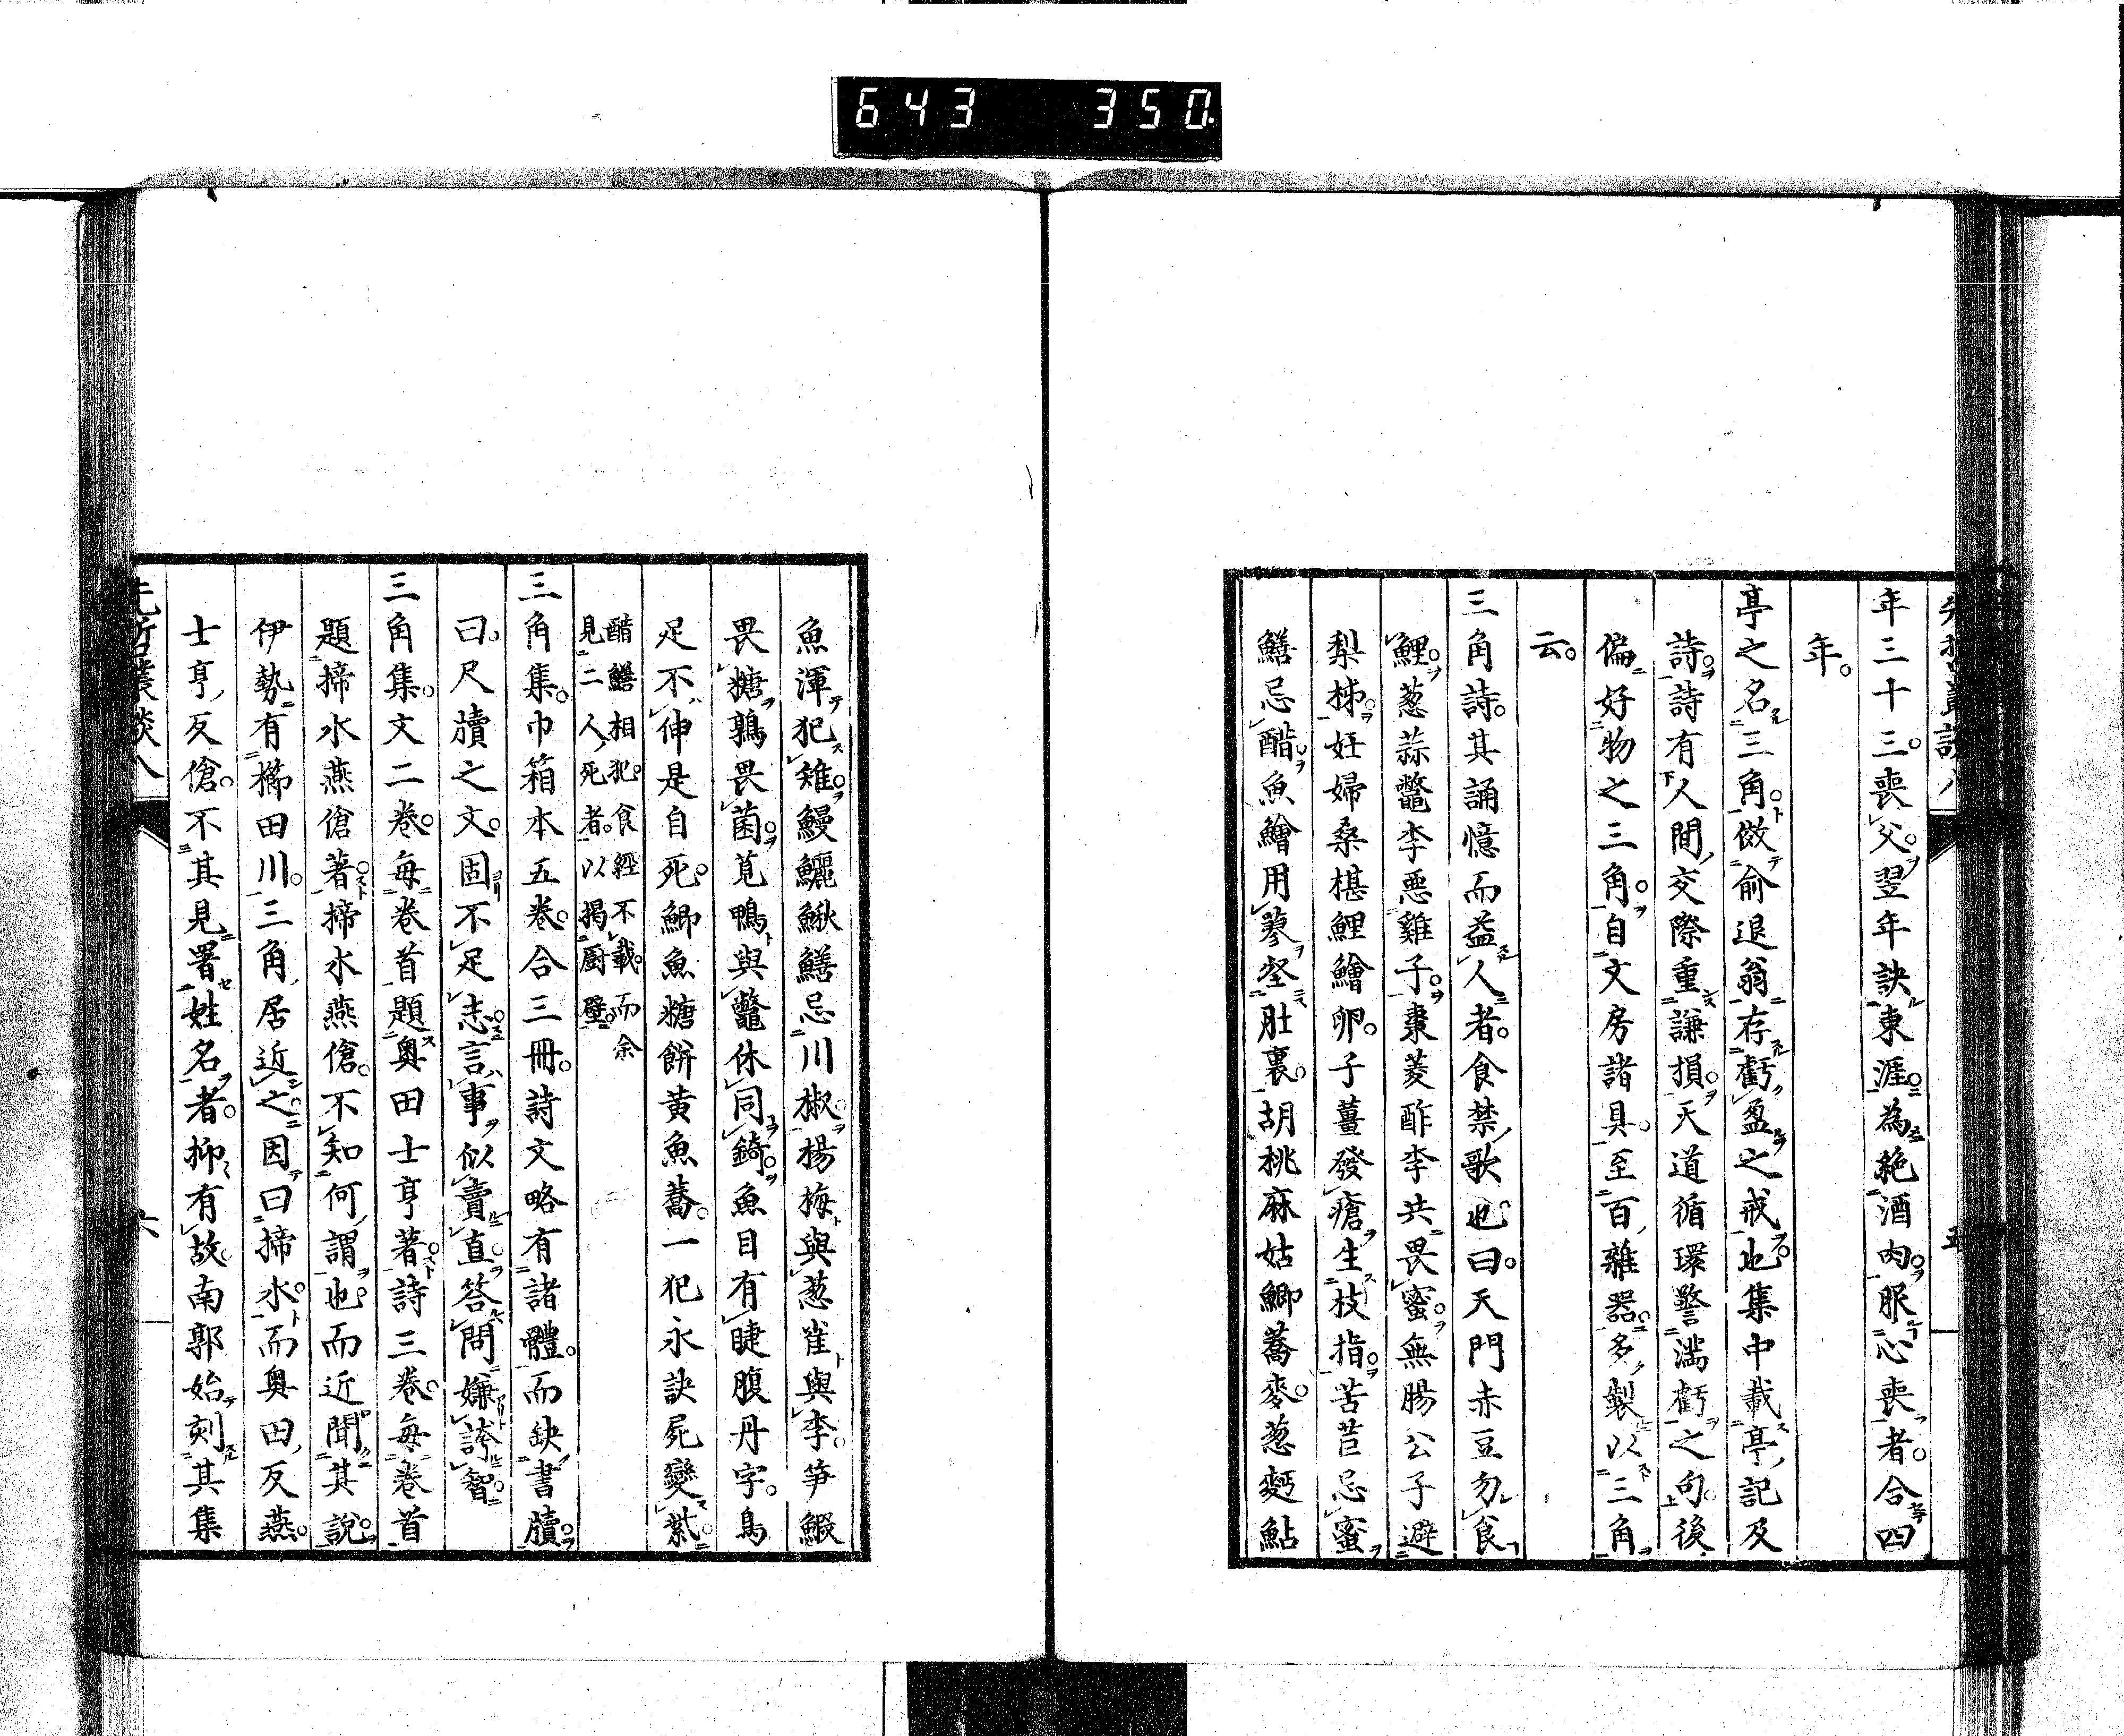 643 350
年三十三。喪父。翌年訣東涯。為絶酒肉。服心喪者。合四
年。
亭之名三角。倣俞退翁存虧盈之戒也。集中載亭記及
詩。詩有人間交際重謙損。天道循環警滿虧之句。後
偏好物之三角。自文房諸具。至百雜器。多製以三角
云。
三角詩。其誦憶而益人者。食禁歌也。曰。天門赤豆勿食
鯉。葱蒜鼈李惡雞子。棗菱酢李共畏蜜。無腸公子避
梨柹。妊婦桑椹鯉鱠卵。子薑發瘡生枝指。苦苣忌蜜
鱔忌醋。魚鱠用蓼壑肚裏。胡桃麻姑鯽蕎麥。葱麪鮎
魚渾犯雉。鰻鱺鰍鱔忌川椒。楊梅與葱雀與李。笋鰕
畏糖鶉畏菌。莧鴨與鼈休同錡。魚目有睫腹丹字。鳥
足不伸是自死。鯽魚糖餅黃魚蕎。一犯永訣屍變紫。
醋鱔相犯。食經不載。而余
見二人死者。以揭厨壁。
三角集。巾箱本五卷。合三冊。詩文略有諸體。而缺書牘。
曰。尺牘之文。固不足志。言事似賣直。答問嫌誇智。
三角集。文二卷。每卷首題奥田士亨著。詩三卷。每卷首
題揥水燕傖著。揥水燕傖。不知何謂也。而近聞其說。
伊勢有櫛田川。三角居近之。因曰揥水。而奥田反燕。
士亨反傖。不其見署姓名者。抑有故。南郭始刻其集
先哲叢談八
六